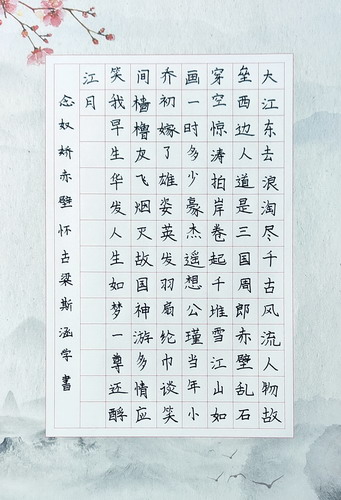 大江东去浪淘尽千古风流人物故
垒西边人道是三国周郎赤壁乱石
穿空惊涛拍岸卷起千堆雪江山如
画一时多少豪杰遥想公瑾当年小
乔初嫁了雄姿英发羽扇纶巾谈笑
间樯橹灰飞烟灭故国神游多情应
笑我早生华发人生如梦一尊还酹
江月
念奴娇赤壁怀古梁斯涵学書